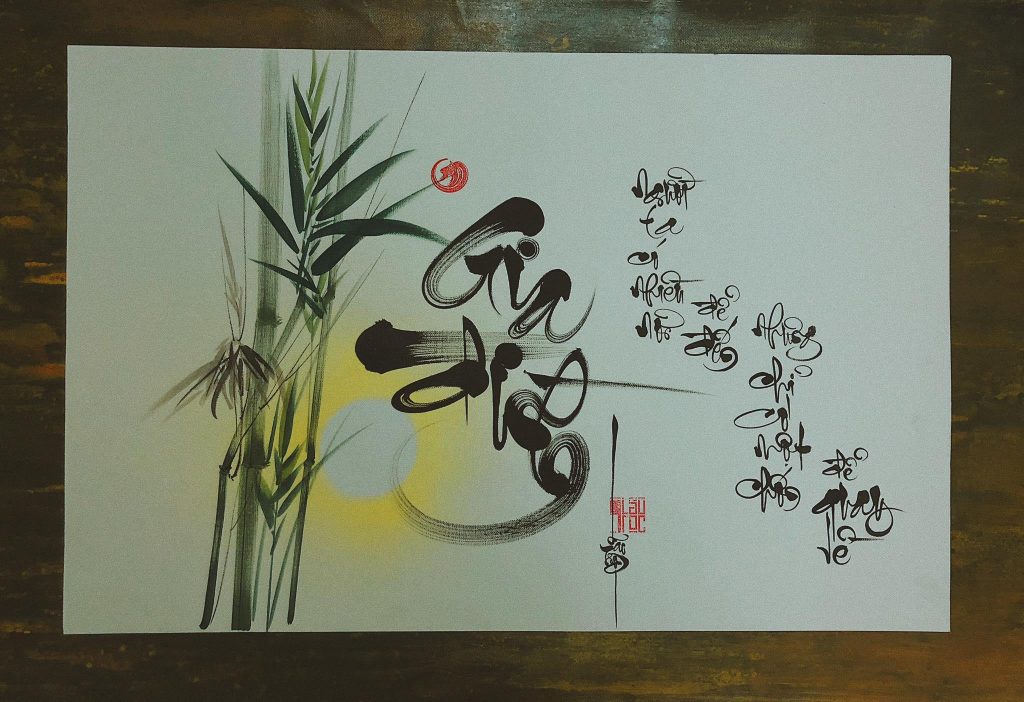 Gia
Đình
Người
ta
có
nhiều
nơi
để
đến
Nhưng
chỉ
có
một
chốn
để
quay
về